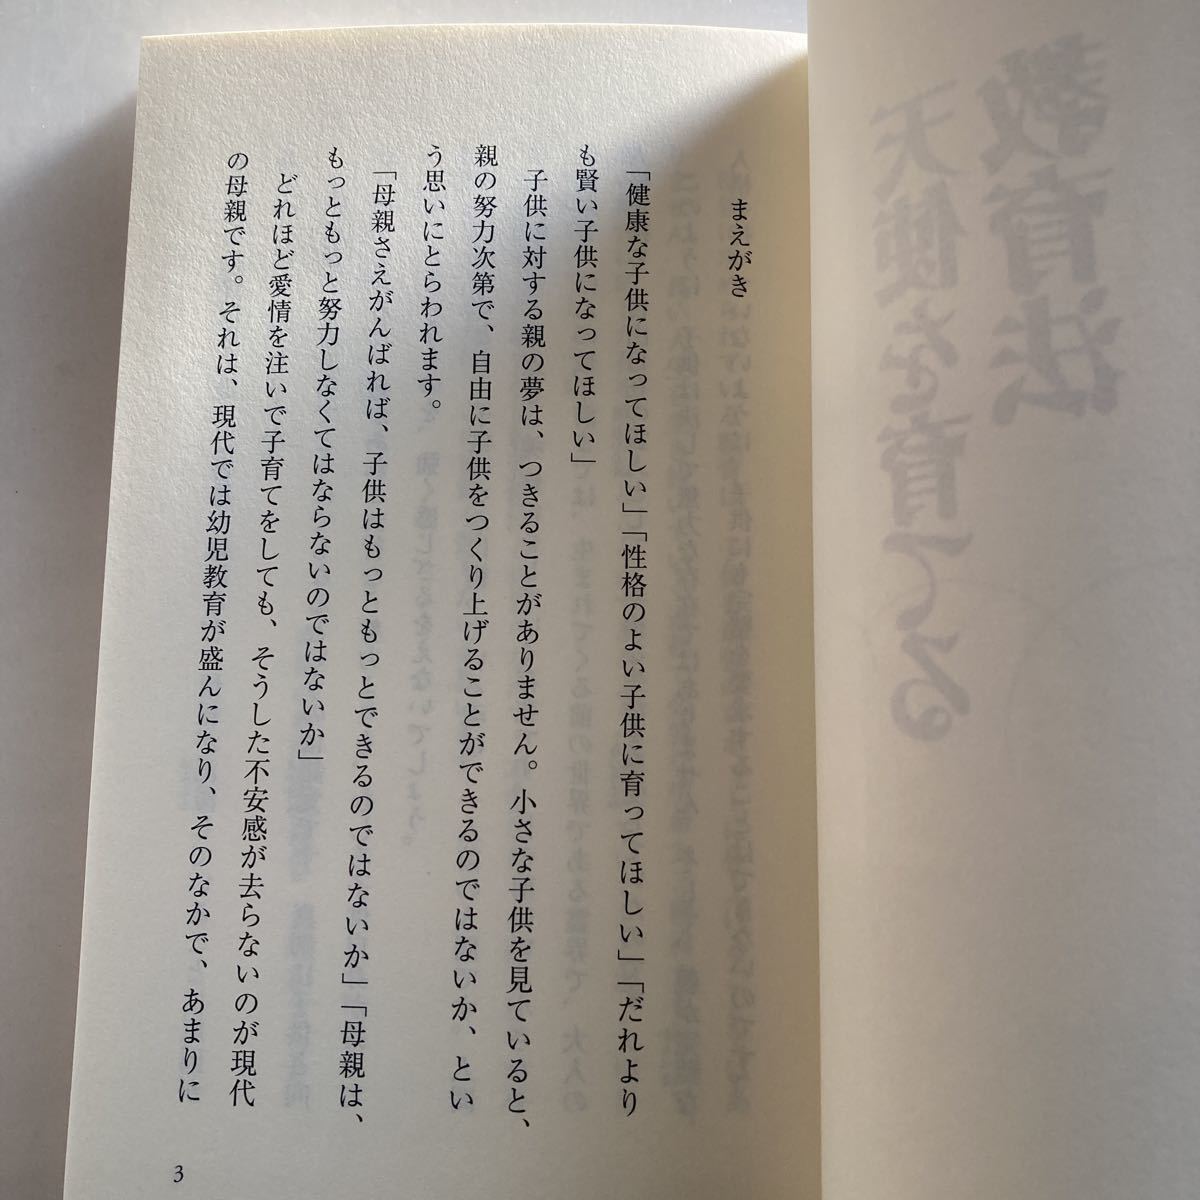 教育法
天使を育てる
まえがき
「健康な子供になってほしい」「性格のよい子供に育ってほしい」「だれより
も賢い子供になってほしい」
子供に対する親の夢は、つきることがありません。小さな子供を見ていると、
親の努力次第で、自由に子供をつくり上げることができるのではないか、とい
う思いにとらわれます。
「母親さえがんばれば、子供はもっともっとできるのではないか」「母親は、
もっともっと努力しなくてはならないのではないか」
どれほど愛情を注いで子育てをしても、そうした不安感が去らないのが現代
の母親です。それは、現代では幼児教育が盛んになり、そのなかで、あまりに
3